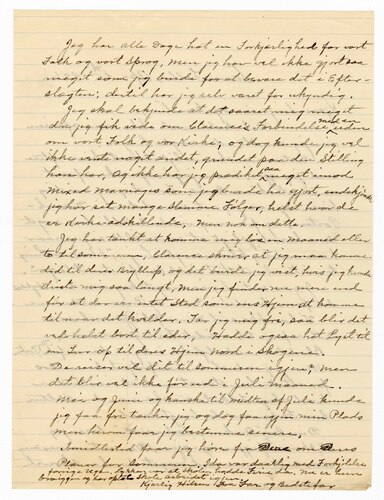 Jeg har alle Dage hat en Forkjærlighed for vort
Folk og vort Sprog, men jeg har vel ikke gjort saa
meget som jeg burde for at bevare det i Efter-
slægten; dertil har jeg selv været for ukyndig.
Jeg skal bekjende at det saaret mig meget
da jeg fik vide om Clarence's Forbindelse med en uden
om vort Folk og vor Kirke; og dog kunde jeg vel
ikke vente noget andet, grundet paa den Stilling
han har, Og ikke har jeg prædiket saa meget imod
Mixed Marriages som jeg burde ha gjort, endskjønt
jeg har set mange slemme Følger, helst hvor de
er Kirke adskillende, Men nok om dette.
Jeg har tænkt at komme mig løs en Maaned eller
to til sommeren, Clarence skriver at jeg maa komme
did til deres Bryllup, og det burde jeg vist, hvis jeg kunde
driste mig saa langt, men jeg finder nu mere end
før at der er intet Sted som ens Hjem at komme
til naar det kvælder. Tar jeg mig fri, saa blir det
vel helst bort til eder, Hadde ogsaa hat Lyst til
en Tur op til deres Hjem nord i Skogene.
De reiser vel dit til sommeren igjen? men
det blir vel ikke før ud i Juli maaned.
Mai og Juni og kanske til Midten af Juli kunde
jeg faa for tanker jeg og dog faa igjen min Plads
men herom faar jeg bestemme senere,
Imidlertid faar jeg høre fra Dere om Deres
Planer for Sommeren,
Kjærlig Hilsen Din Far og Bedstefar